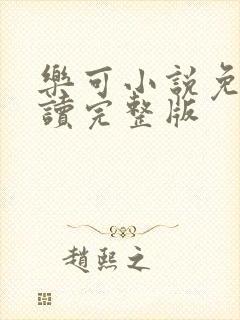 樂可小說免
讀完整版
趙熙之